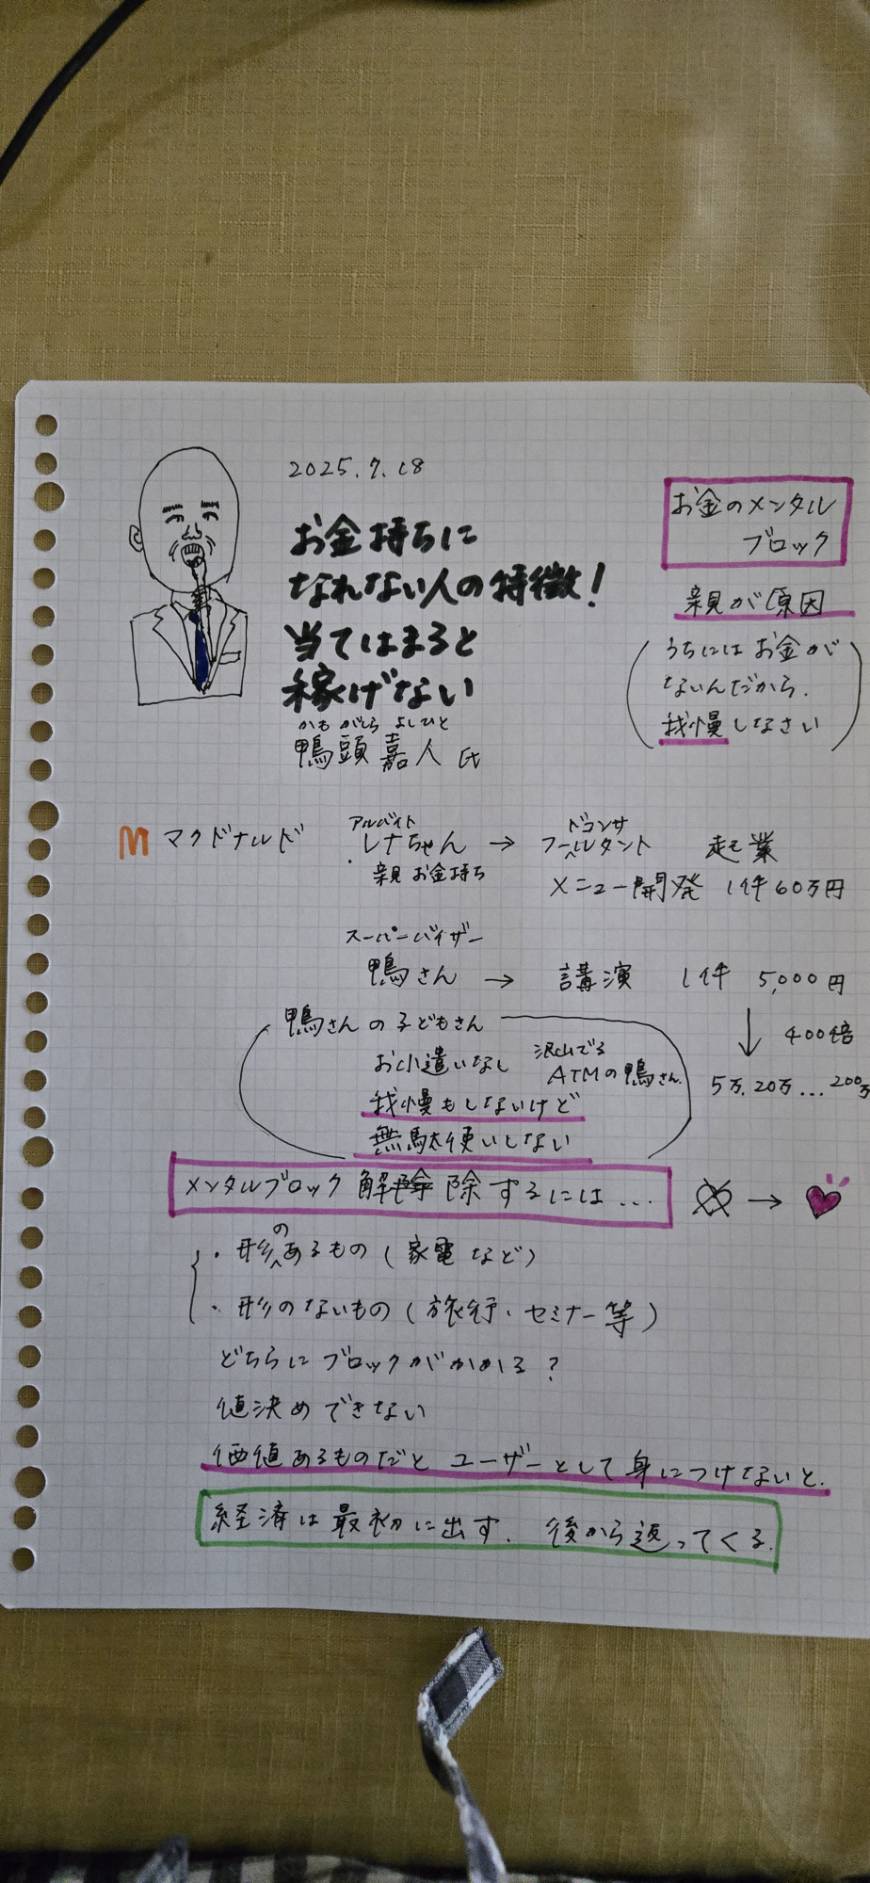 2025.7.18
お金持ちに
なれない人の特徴!
当てはまると
稼げない
かも がしら よしひと
鴨頭 嘉人 氏
お金のメンタル
ブロック
親が原因
うちにはお金が
ないんだから.
我慢しなさい
M マクドナルド
アルバイト
レナちゃん →
親 お金持ち
ドコンサ
フールタント 起業
メニュー開発 1件60万円
スーパーバイザー
鴨さん → 講演 1件 5,000円
↓ 400倍
5万.20万...200万
鴨さんの子どもさん
お小遣いなし
沢山でる
ATMの鴨さん.
我慢もしないけど
無駄使いしない
メンタルブロック 解除 除するには...
→
・形のあるもの(家電など)
・形のないもの(旅行・セミナー等)
どちらにブロックがかかる?
値決めできない
価値あるものだと ユーザーとして身につけないと.
経済は最初に出す. 後から返ってくる.